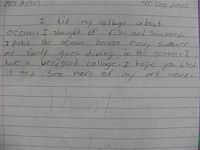 I did my collage about
ocean. I thought of fish and seaweed.
I picked the ocean because every summer
my family goes diving in the ocean. I
have a very good collage. I hope you liked
it and see more of my art work.